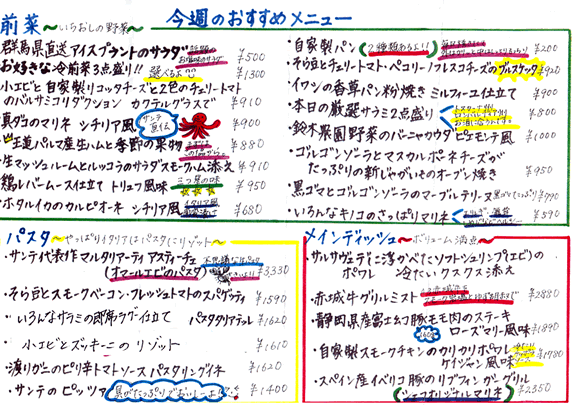 今週のおすすめメニュー
前菜 ～いちおしの野菜～
群馬県直送アイスプラントのサラダ ¥500
お好きな冷前菜3点盛り!! 選べるよ ¥1300
小エビと自家製リコッタチーズと2色のチェリートマト
のバルサミコリダクション カクテルグラスで ¥910
真ダコのマリネ シチリア風 ¥900
パルマ産生ハムと季節の果物 ¥880
生マッシュルームとルッコラのサラダスモークハム添え ¥910
鶏レバームース仕立て トリュフ風味 ¥950
ホタルイカのカルピオーネ シチリア風 ¥680
・自家製パン (2種類あるよ!!) ¥200
・そら豆とチェリートマト・ペコリーノフレスコチーズのブルスケッタ ¥920
・イワシの香草パン粉焼き ミルフィーユ仕立て ¥900
・本日の厳選サラミ2点盛り ¥800
・鈴木農園野菜のバーニャカウダ ピエモンテ風 ¥1000
・ゴルゴンゾーラとマスカルポーネチーズが
たっぷりの新じゃがいものオーブン焼き ¥950
・黒ゴマとゴルゴンゾーラのマーブルテリーヌ
・いろんなキノコのさっぱりマリネ ¥590
パスタ ～やっぱりイタリアはパスタにリゾット～
・サンテ代表作 マルタリアーティ アスティーチェ
(オマールエビのパスタ) ¥3330
・そら豆とスモークベーコン・フレッシュトマトのスパゲッティ ¥1590
・いろんなサラミの即席ラグー仕立て パスタタリアテッレ ¥1620
小エビとズッキーニのリゾット ¥1610
・渡りガニのピリ辛トマトソース パスタリングイネ ¥1620
・サンテのピッツァ 具がたっぷりでおいしーよ!! ¥1400
メインディッシュ ～ボリューム満点～
ポワレ 冷たいクスクス添え
・赤城牛グリルミスト ¥2880
・静岡県産富士幻豚モモ肉のステーキ
ローズマリー風味 ¥1890
・自家製スモークチキンのカリカリポワレ
ケイジャン風味 ¥1780
・スペイン産イベリコ豚のリブフィンガーグリル
(シェフオリジナルマリネ) ¥2350